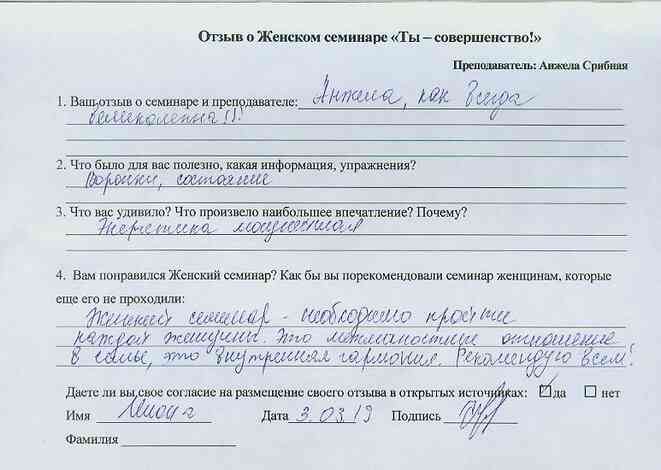 Отзыв о Женском семинаре «Ты – совершенство!»
Преподаватель: Анжела Срибная
1. Ваш отзыв о семинаре и преподавателе: Анжела, как всегда
великолепна!!!
2. Что было для вас полезно, какая информация, упражнения?
Воронки, состояние
3. Что вас удивило? Что произвело наибольшее впечатление? Почему?
Энергетика мощнейшая
4. Вам понравился Женский семинар? Как бы вы порекомендовали семинар женщинам, которые
еще его не проходили:
Женский семинар - необходимо пройти
каждой женщине. Это отношение
в семье, это внутренняя гармония. Рекомендую всем!
Даете ли вы свое согласие на размещение своего отзыва в открытых источниках: да нет
Имя Дата 3.03.19 Подпись
Фамилия